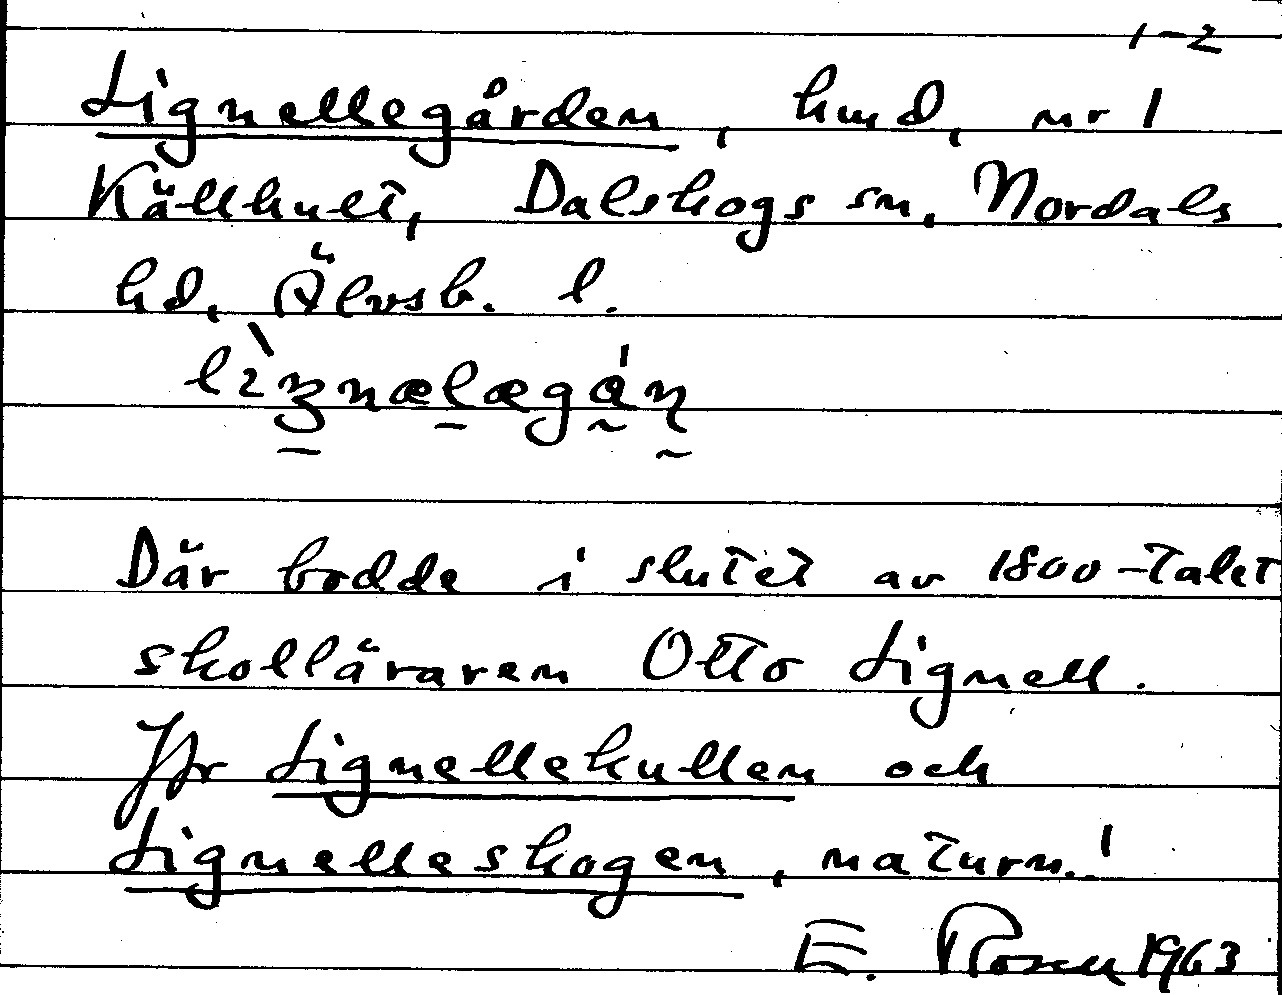 1-2
Lignellegården, hmd, nr 1
Källhult, Dalskogs sn, Nordals
hd, Älvsb. l.
Där bodde i slutet av 1800-talet
skolläraren Otto Lignell.
Jfr Lignellekullen och
Lignelleskogen, naturn.!
E. Rosell 1963